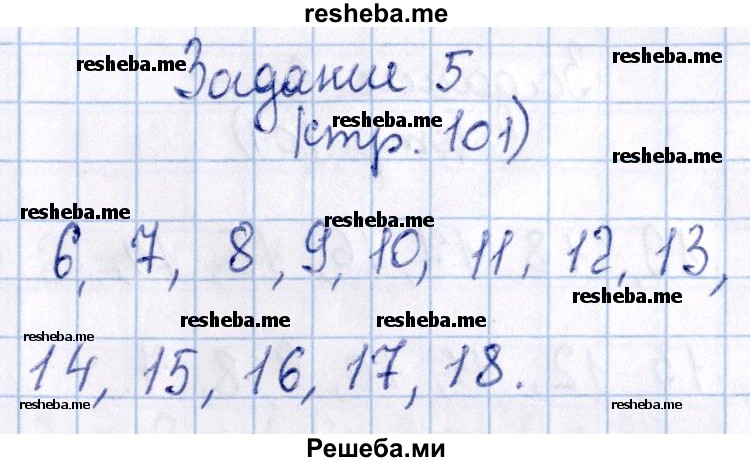 resheba.me
resheba.me
Задание 5
resheba.me
resheba.me
(стр. 101)
resheba.me
resheba.me
resheba.me
6, 7, 8, 9, 10, 11, 12, 13,
resheba.me
resheba.me
resheba.me
resheba.me
14, 15, 16, 17, 18.
resheba.me
resheba.me
Решеба.ми